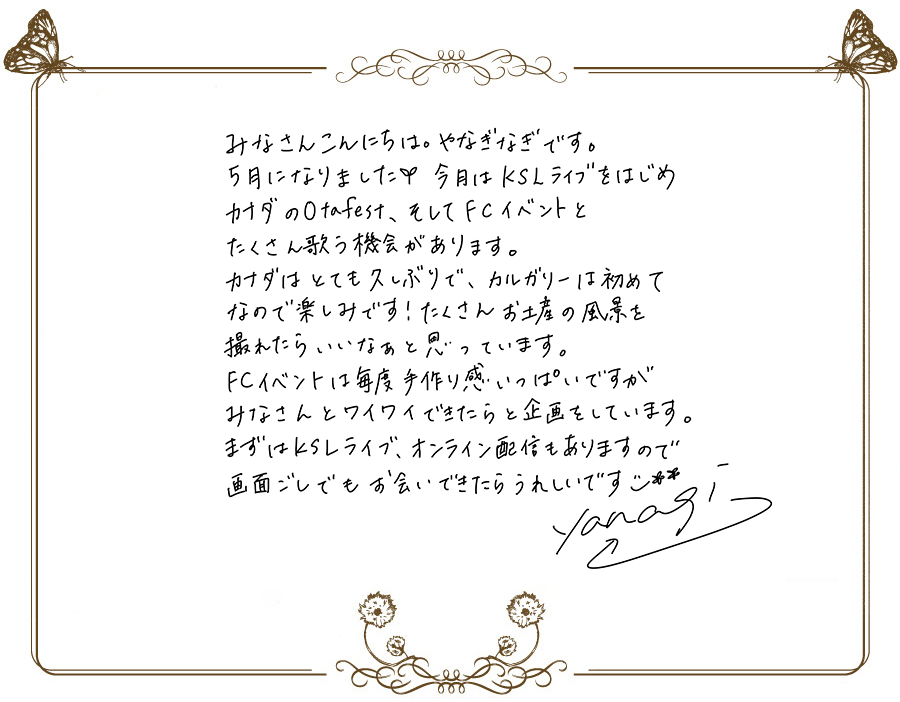 みなさんこんにちは。やなぎなぎです。
5月になりました 今月はKSLライブをはじめ
カナダのOtafest、そしてFCイベントと
たくさん歌う機会があります。
カナダはとても久しぶりで、カルガリーは初めて
なので楽しみです!たくさんお土産の風景を
撮れたらいいなぁと思っています。
FCイベントは毎度手作り感いっぱいですが
みなさんとワイワイできたらと企画をしています。
まずはKSLライブ、オンライン配信もありますので
画面ごしでもお会いできたらうれしいです
yanagi